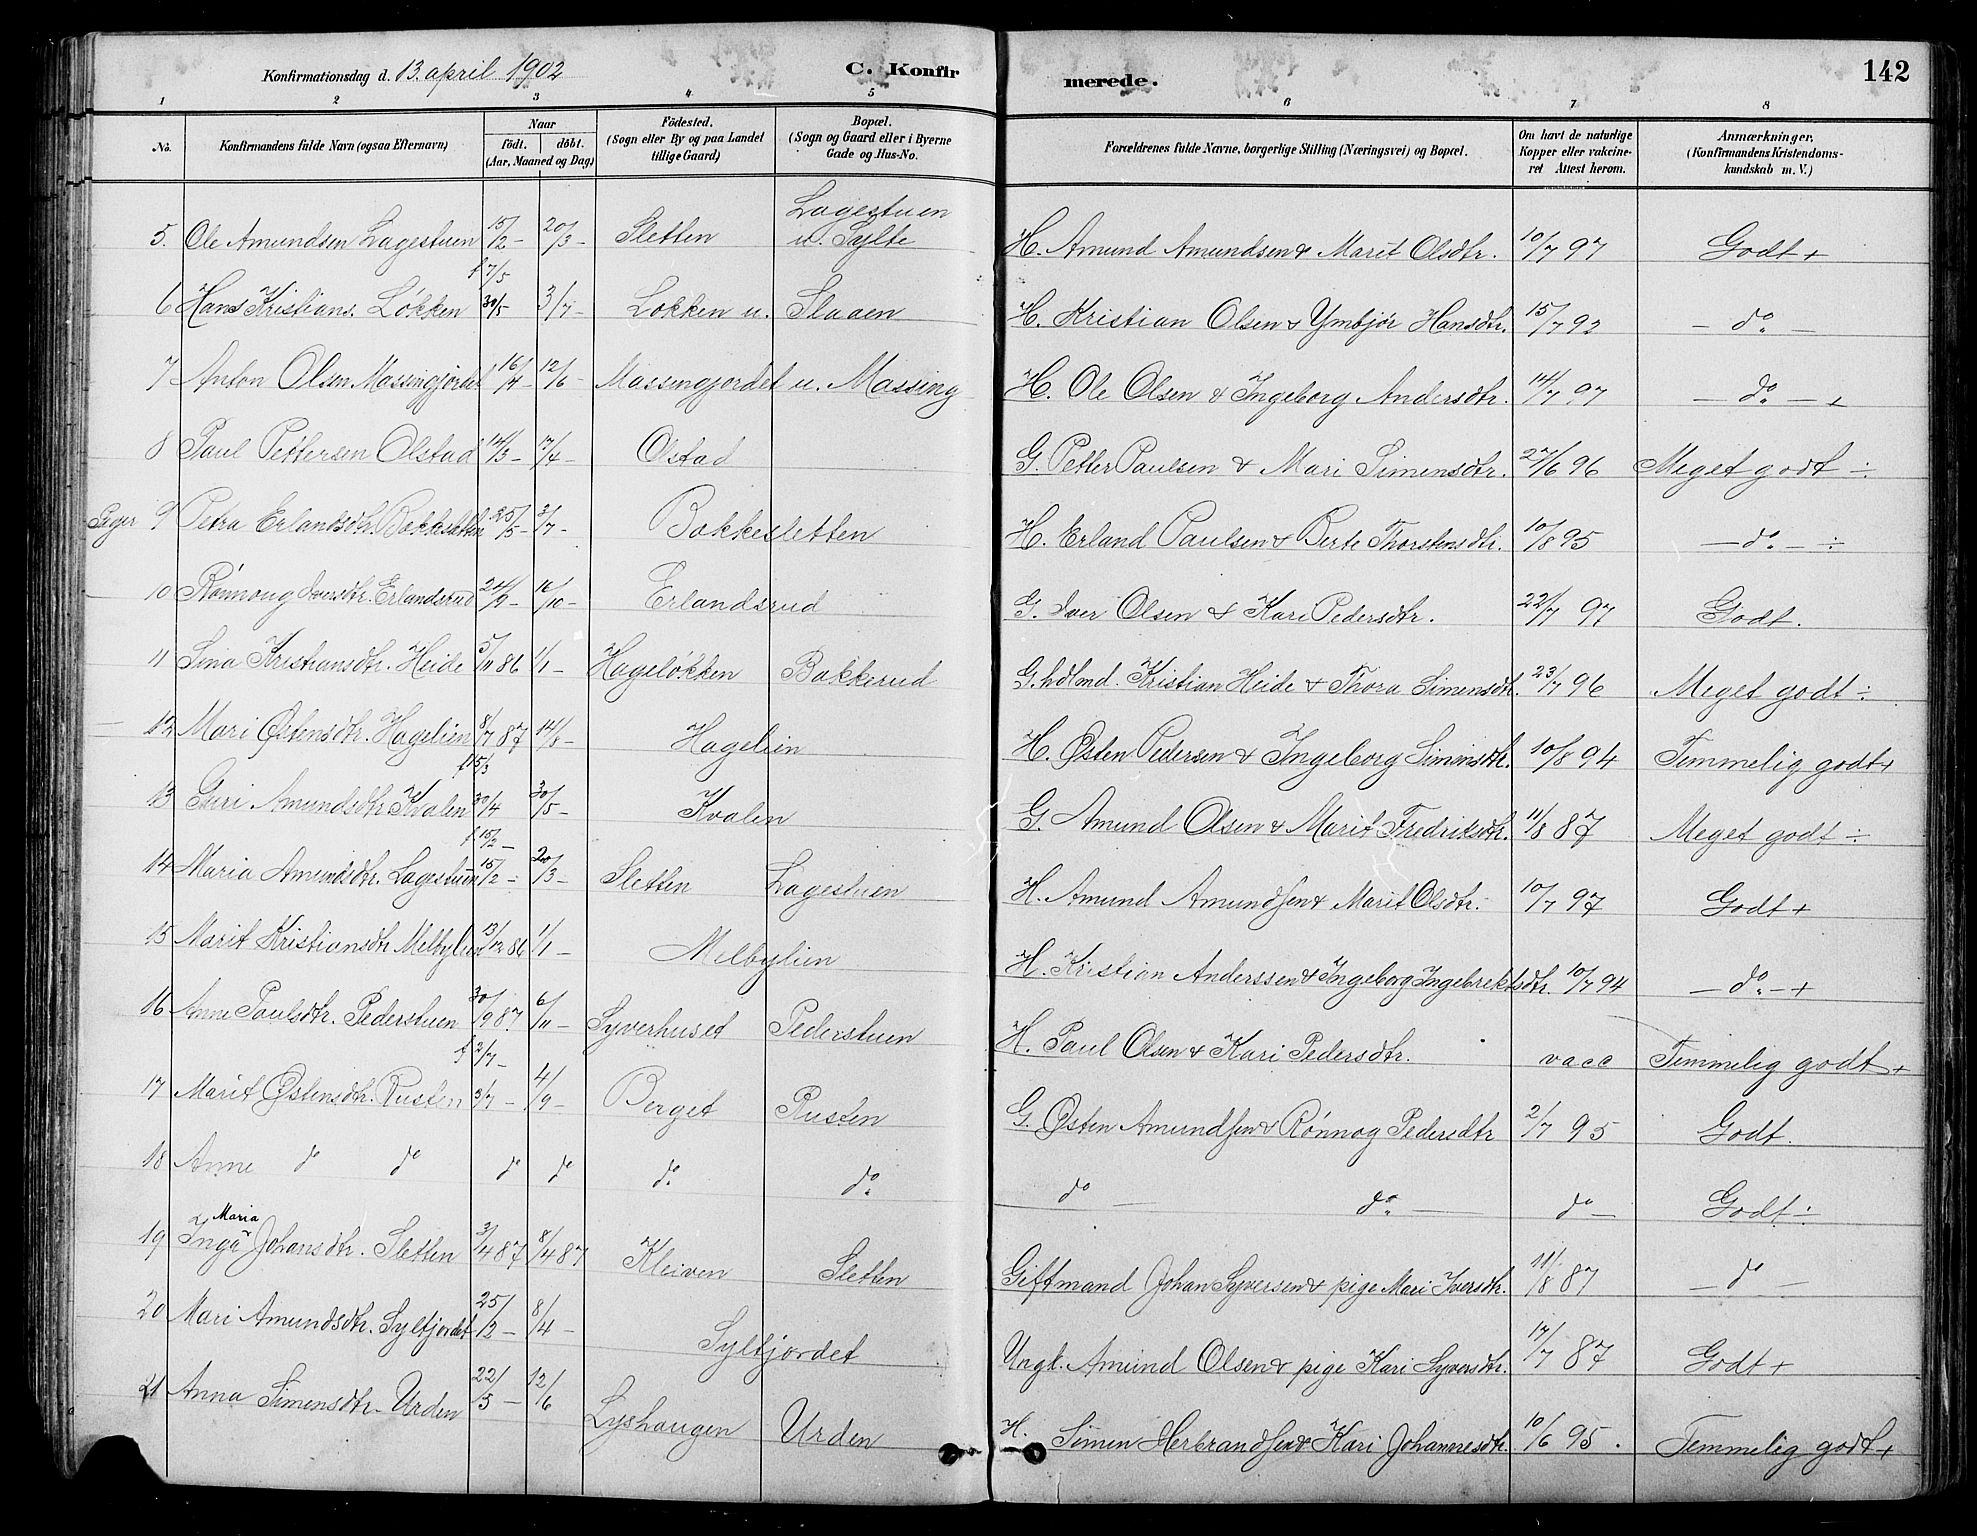 Konfirmationsdag d. 13. april 1902 C. Konfirmerede. 142
1 2 3 4 5 6 7 8
No. Konfirmandens fulde Navn (ogsaa Efternavn) Naar født. døbt. (Aar, Maaned og Dag) Fødested. (Sogn eller By og paa Landet tillige Gaard) Bopæl. (Sogn og Gaard eller i Byerne Gade og Hus-No. Forældrenes fulde Navne, borgerlige Stilling (Næringsvei) og Bopæl. Om havt de naturlige Kopper eller vakcineret Attest herom. Anmærkninger, (Konfirmandens Kristendomskundskab m. V.)
5. Ole Amundsen Lagestuen 15/2 - 20/3 - Sletten Lagestuen u. Sylte H. Amund Amundsen & Marit Olsdtr. 10/7 97 Godt +
f 7/5
6 Hans Kristians. Løkken 30/5 3/7 - Løkken u. Slaaen H. Kristian Olsen & Ymbjør Hansdtr. 15/7 92 - do -
7 Anton Olsen Massingjordet 16/4 - 12/6 - Massingjordet u. Massing H. Ole Olsen & Ingeborg Andersdtr. 14/7 97 - do - +
8 Paul Pettersen Olstad 14/3 - 17/4 - Olstad G. Petter Paulsen & Mari Simensdtr. 27/6 96 Meget godt ÷
9 Petra Erlandsdtr. Bakkesletten 25/5 - 3/7 - Bakkesletten H. Erland Paulsen & Berte Thorstensdtr. 10/8 95 - do - ÷
10 Rønnoug Iversdtr. Erlandsrud 24/9 - 16/10 - Erlandsrud G. Iver Olsen & Kari Pedersdtr. 22/7 97 Godt.
11 Sina Kristiansdtr. Heide 5/11 86 1/1 - Hageløkken Bakkerud G. hdlmd. Kristian Heide & Thora Simensdtr. 23/7 96 Meget godt ÷
12 Mari Østensdtr. Hagelien 8/7 87 14/8 - Hagelien H. Østen Pedersen & Ingeborg Simensdtr. 10/8 94 Temmelig godt +
f 15/3
13 Guri Amundsdtr Kvalen 30/4 30/5 - Kvalen G. Amund Olsen & Marit Fredriksdtr. 11/8 87 Meget godt ÷
f 15/2 -
14 Maria Amundsdtr. Lagestuen 15/2 - 20/3 - Sletten Lagestuen H. Amund Amundsen & Marit Olsdtr. 10/7 97 Godt +
15 Marit Kristiansdtr Melbylien 13/12 86 1/1 - Melbylien H. Kristian Anderssen & Ingeborg Ingebrektsdtr. 10/7 94 - do - +
16 Anne Paulsdtr. Pederstuen 30/9 87 6/11 - Syverhuset Pederstuen H. Paul Olsen & Kari Pedersdtr. vacc Temmelig godt +
f 2/7 -
17 Marit Østensdtr. Rusten 3/7 - 4/9 - Berget Rusten G. Østen Amundsen & Rønnog Pedersdtr 2/7 95 Godt.
18 Anne do do do do do do do - do - do - Godt ÷
19 Inga Maria Johansdtr. Sletten 3/4 87 8/4 87 Kleiven Sletten Giftmand Johan Syversen & pige Mari Iversdtr. 11/8 87 - do -
20 Mari Amundsdtr. Syltjordet 25/2 - 8/4 - Syltjordet Ungk. Amund Olsen & pige Kari Syversdtr. 17/7 87 Godt +
21 Anna Simensdtr. Urden 22/5 - 12/6 Lyshaugen Urden H. Simen Herbrandsen & Kari Johannesdtr. 10/6 95. Temmelig godt +